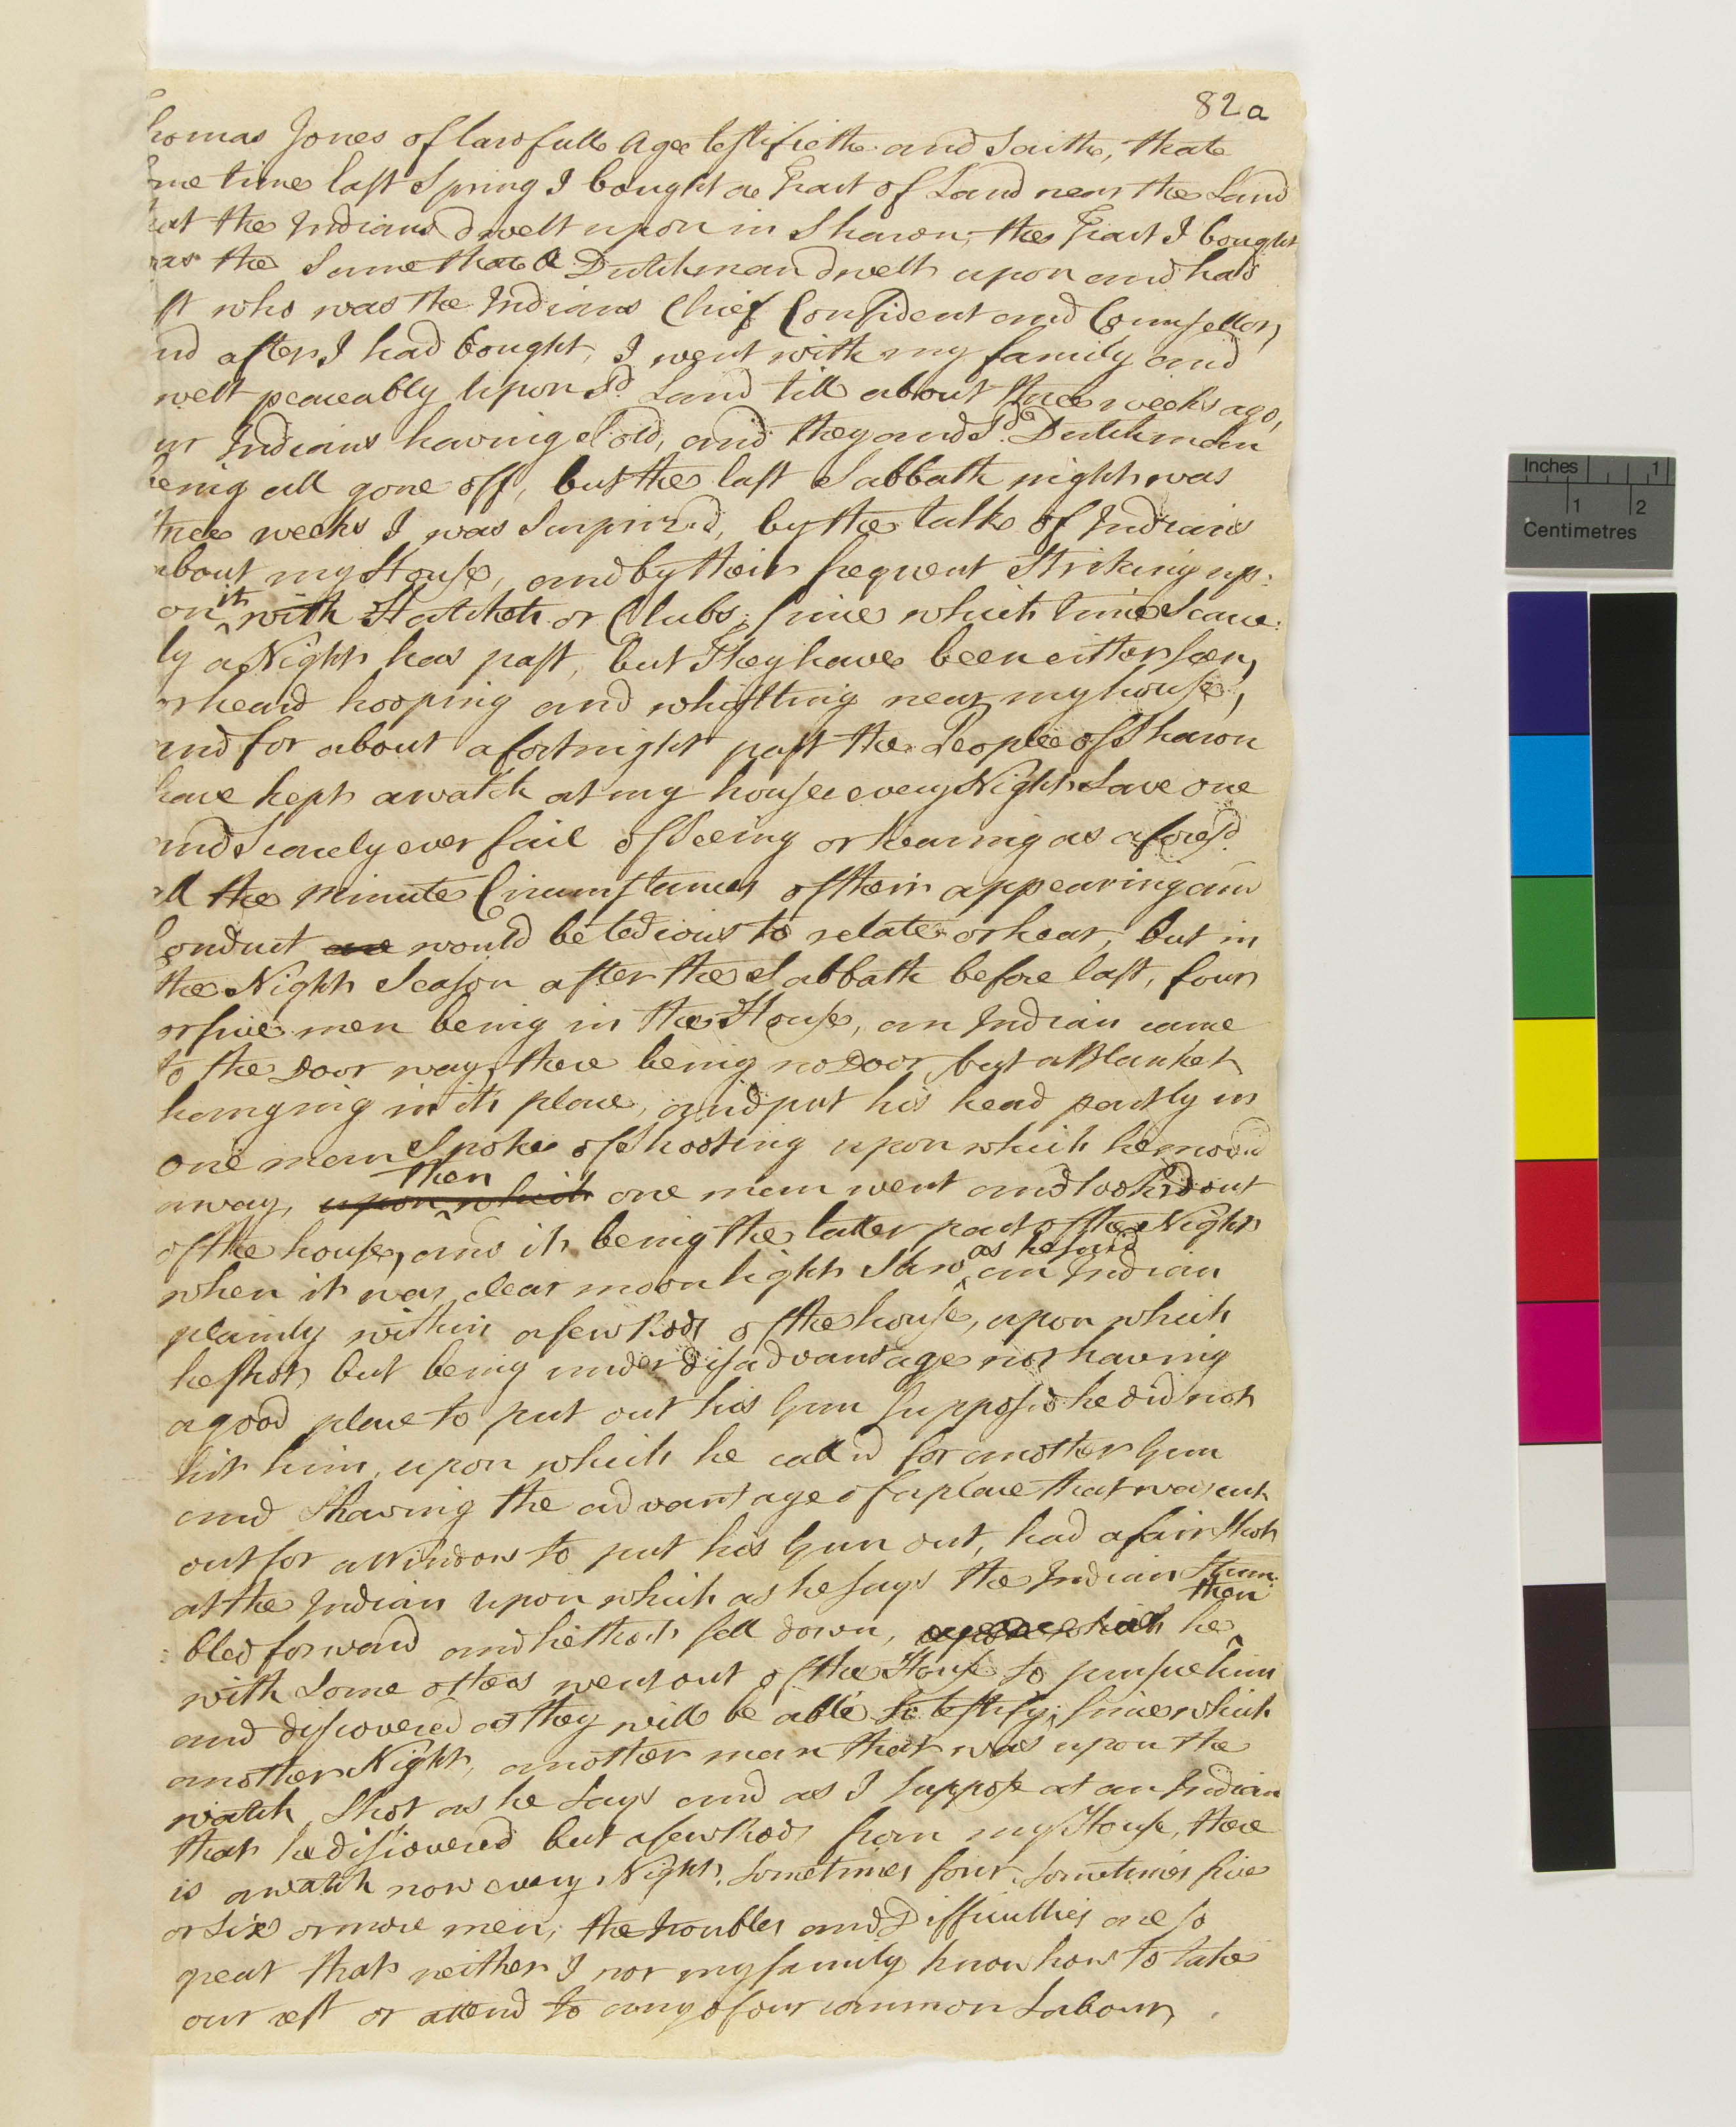 82a
homas Jones of lawfull Age testifieth and Saith, that
me time last Spring I bought a Tract of Land near the Land
at the Indians dwelt upon in Sharon, the Tract I bought
as the Same that a Dutchman dwelt upon and had
ft who was the Indians Chief Confident and Counsellor,
nd after I had bought, I went with my family and
welt peaceably upon Sd. Land till about three weeks ago,
ur Indians having Sold, and they and Sd. Dutchman
being all gone off, but the last Sabbath night was
three weeks I was Surprized, by the talk of Indians
about my House, and by their frequent Striking up:
on it with Hatchets or Clubs; Since which time Scarce:
ly a Night has past, but They have been either seen,
or heard hooping and whistling near my house,
and for about a fortnight past the People of Sharon
have kept a watch at my house every Night Save one
and Scarcely ever fail of Seeing or hearing as aforesd.
all the minute Circumstances of their appearing and
Conduct are would be tedious to relate or hear, but in
the Night Season after the Sabbath before last, four
or five men being in the House, an Indian came
to the Door way there being no Door but a Blanket
hanging in its place, and put his head partly in
one man Spoke of Shooting upon which he moovd
away, upon which then one man went and lookd out
of the house, and it being the latter part of the Night
when it was clear moon light Saw as he said an Indian
plainly within a few Rods of the house, upon which
he shot, but being under disadvantage not having
a good place to put out his Gun Supposd he did not
hit him, upon which he calld for another Gun
and having the advantage of a place that was cut
out for a Window to put his Gun out, had a fair Shot
at the Indian upon which as he says the Indian Stum:
bled forward and fell down, upon which he then
with Some others went out of the House to pursue him
and discovered as they will be able to testify; Since which
another Night, another man that was upon the
watch Shot as he Says and as I Suppose at an Indian
that he discovered but a few Rods from my House, there
is a watch now every Night, Sometimes four, Sometimes five
or Six or more men; the troubles and Difficulties are so
great that neither I nor my family know how to take
our rest or attend to any of our common Labour,
Inches 1
1 2
Centimetres